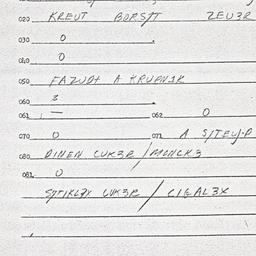 020 KREUT BORSTT ZEU3R
030 0
040 0
050 FAZUD+ A KRUPV1R
060 3
061 — 062 0
070 0 071 A S/TEUJ.D
080 DINEN CUK3R / MONCK3
081 0
STTIRL3X CUK3R / CIGAL3X